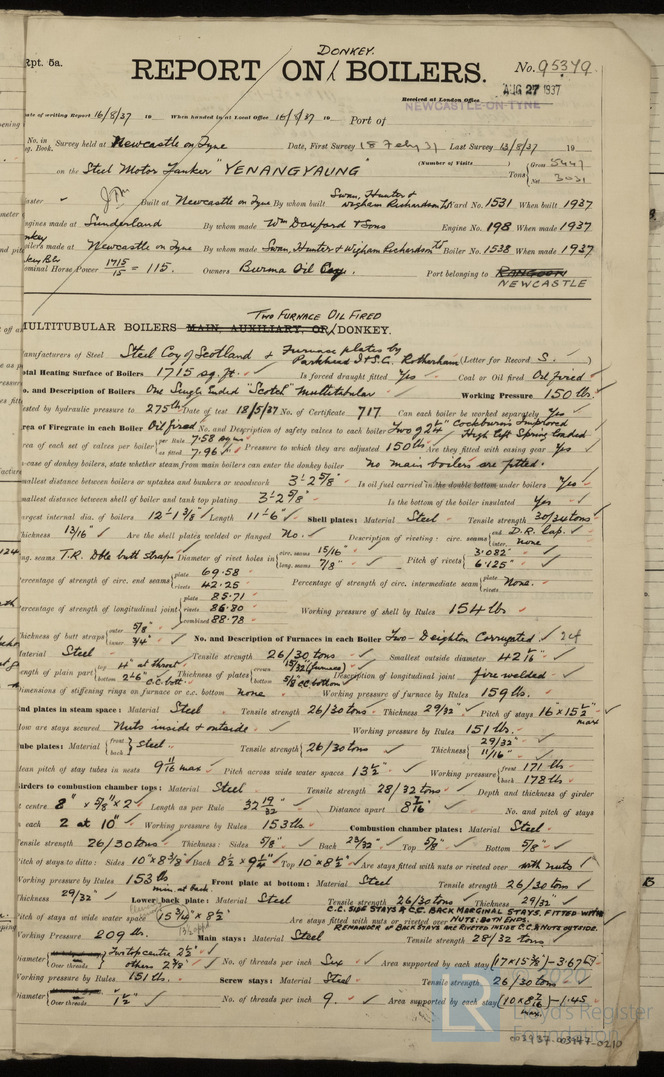 Rpt. 5a.
DONKEY.
REPORT ON BOILERS.
No. 95379.
AUG 27 1937
Received at London Office
NEWCASTLE-ON-TYNE
Date of writing Report 16/8/37 19 When handed in at Local Office 16/8/37 19 Port of
No. in Survey held at Newcastle on Tyne Date, First Survey 18 Feby 37 Last Survey 13/8/37 19
Reg. Book. (Number of Visits )
on the Steel Motor Tanker "YENANGYAUNG" Tons { Gross 5447 Net 3031
Built at Newcastle on Tyne By whom built Swan, Hunter & Wigham Richardson Ltd Yard No. 1531 When built 1937
Engines made at Sunderland By whom made Wm Doxford & Sons Engine No. 198 When made 1937
Boilers made at Newcastle on Tyne By whom made Swan, Hunter & Wigham Richardson Ltd Boiler No. 1538 When made 1937
Nominal Horse Power 1715/15 = 115. Owners Burma Oil Coy. Port belonging to RANGOON
NEWCASTLE
TWO FURNACE OIL FIRED
MULTITUBULAR BOILERS MAIN, AUXILIARY, OR DONKEY.
Manufacturers of Steel Steel Coy of Scotland & Furnace plates by Parkhead I & S.C. Rotherham (Letter for Record S. )
Total Heating Surface of Boilers 1715 sq. ft. Is forced draught fitted Yes Coal or Oil fired Oil fired
No. and Description of Boilers One Single Ended "Scotch" Multitubular Working Pressure 150 lbs.
Tested by hydraulic pressure to 275 lbs Date of test 18/5/37 No. of Certificate 717 Can each boiler be worked separately Yes
Area of Firegrate in each Boiler Oil fired No. and Description of safety valves to each boiler Two @ 2¼" Cockburn's Improved High Lift Spring loaded
Area of each set of valves per boiler { per Rule 7.58 sq ins as fitted 7.96 Pressure to which they are adjusted 150 lbs Are they fitted with easing gear Yes
In case of donkey boilers, state whether steam from main boilers can enter the donkey boiler No main boilers are fitted.
Smallest distance between boilers or uptakes and bunkers or woodwork 3'-2⅝" Is oil fuel carried in the double bottom under boilers Yes
Smallest distance between shell of boiler and tank top plating 3'-2⅝" Is the bottom of the boiler insulated Yes
Largest internal dia. of boilers 12'-1⅜" Length 11'-6" Shell plates: Material Steel Tensile strength 30/34 tons
Thickness 13/16" Are the shell plates welded or flanged No. Description of riveting: circ. seams { end D.R. Lap. inter. none
long. seams T.R. Dble butt straps Diameter of rivet holes in { circ. seams 15/16" long. seams 7/8" Pitch of rivets { 3.082" 6.125"
Percentage of strength of circ. end seams { plate 69.58 rivets 42.25 Percentage of strength of circ. intermediate seam { plate rivets None.
Percentage of strength of longitudinal joint { plate 85.71 rivets 86.80 combined 88.78 Working pressure of shell by Rules 154 lbs
Thickness of butt straps { outer 5/8" inner 3/4" No. and Description of Furnaces in each Boiler Two - Deighton Corrugated.
Material Steel Tensile strength 26/30 tons Smallest outside diameter 42 1/16"
Length of plain part { top 4" at throat bottom 2'-6" C.C. bott. Thickness of plates { crown 15/32 (furnaces) bottom 5/8" C.C. bottom Description of longitudinal joint fire welded
Dimensions of stiffening rings on furnace or c.c. bottom none Working pressure of furnace by Rules 159 lbs.
End plates in steam space: Material Steel Tensile strength 26/30 tons Thickness 29/32" Pitch of stays 16" x 15½" max
How are stays secured Nuts inside & outside Working pressure by Rules 151 lbs.
Tube plates: Material { front back Steel Tensile strength { 26/30 tons Thickness { 29/32" 11/16"
Mean pitch of stay tubes in nests 9 11/16 max Pitch across wide water spaces 13½" Working pressure { front 171 lbs back 178 lbs
Girders to combustion chamber tops: Material Steel Tensile strength 28/32 tons Depth and thickness of girder
at centre 8" x 5/8" x 2 Length as per Rule 32 19/32" Distance apart 8 7/16" No. and pitch of stays
in each 2 at 10" Working pressure by Rules 153 lbs Combustion chamber plates: Material Steel.
Tensile strength 26/30 tons Thickness: Sides 5/8" Back 23/32" Top 5/8" Bottom 5/8"
Pitch of stays to ditto: Sides 10" x 8⅜" Back 8½ x 9¼" Top 10" x 8½" Are stays fitted with nuts or riveted over with nuts
Working pressure by Rules 153 lbs min. at back. Front plate at bottom: Material Steel Tensile strength 26/30 tons
Thickness 29/32" Lower back plate: Material Steel Tensile strength 26/30 tons Thickness 29/32
C.C. SIDE STAYS & C.C. BACK MARGINAL STAYS. FITTED WITH NUTS. BOTH ENDS.
Pitch of stays at wide water space 15¾" x 8½" Are stays fitted with nuts or riveted over REMAINDER OF BACK STAYS ARE RIVETED INSIDE C.C. & NUTS OUTSIDE.
Working Pressure 209 lbs. Main stays: Material Steel Tensile strength 28/32 tons
Diameter { Over threads For top centre 2½" others 2⅜" No. of threads per inch Six Area supported by each stay (17 x 15⅜)-3.67
Working pressure by Rules 151 lbs. Screw stays: Material Steel Tensile strength 26/30 tons
Diameter { Over threads 1½" No. of threads per inch 9. Area supported by each stay (10 x 8 7/16)-1.45 max.
© 2020
LR
Lloyd's Register
Foundation
003937-003947-0210